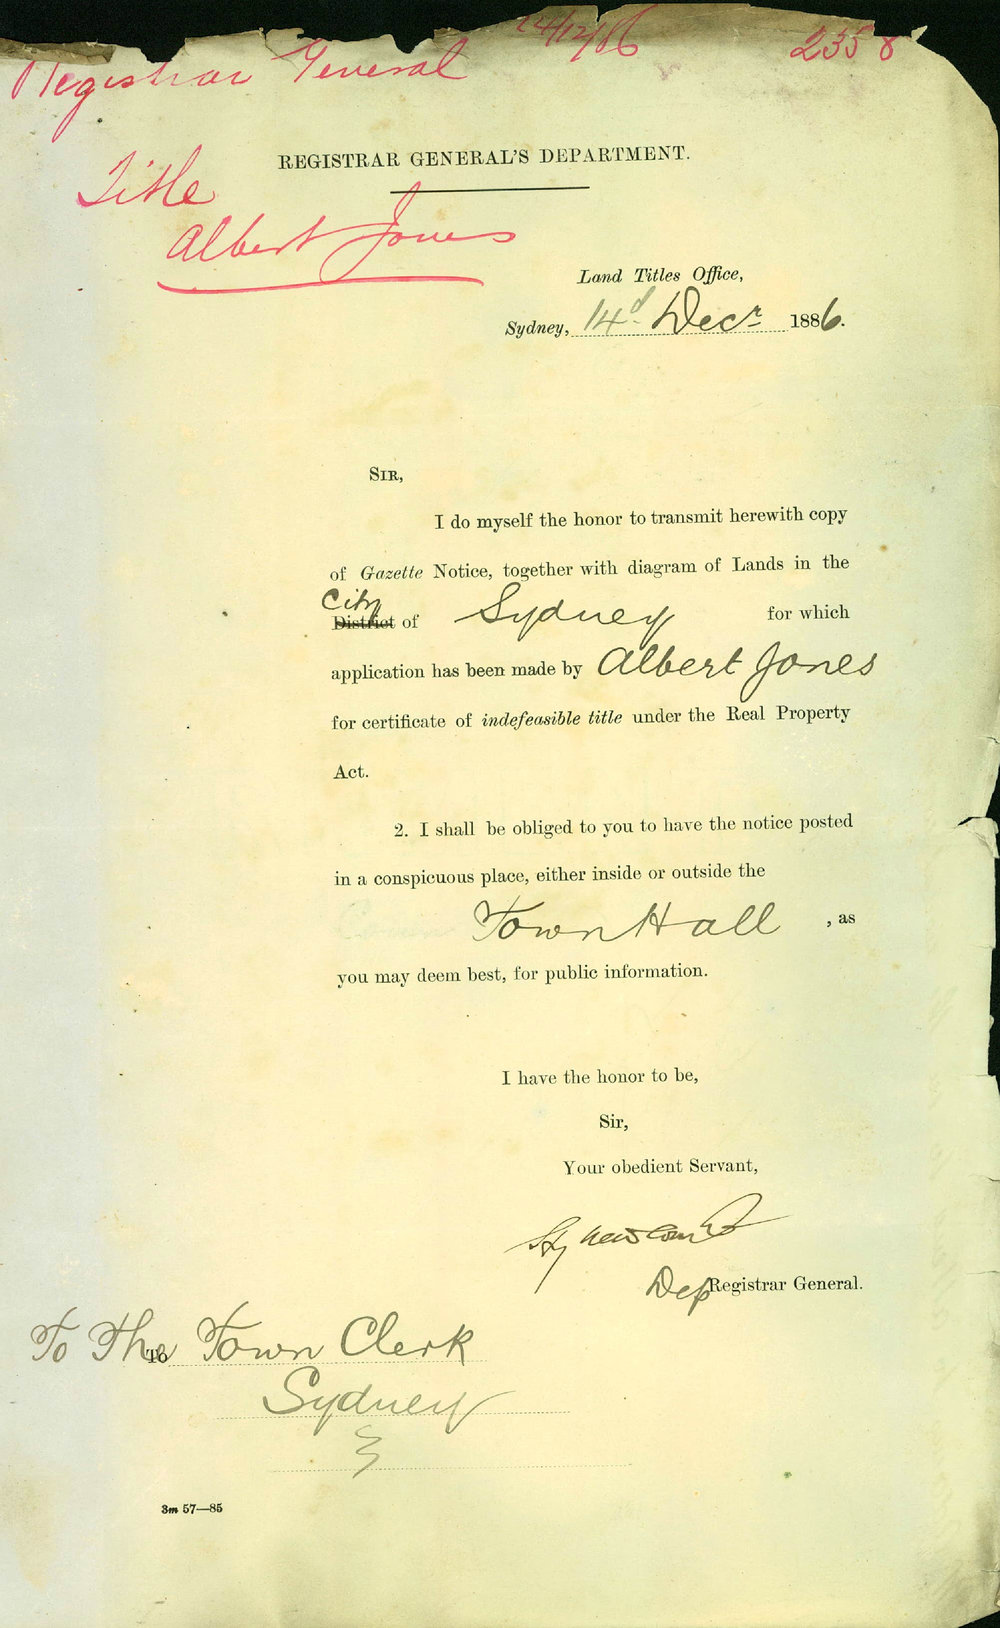 24/12/86
2358
Registrar General
REGISTRAR GENERAL'S DEPARTMENT.
Title
Albert Jones
Land Titles Office,
Sydney, 14d Decr 1886.
SIR,
I do myself the honor to transmit herewith copy
of Gazette Notice, together with diagram of Lands in the
City
District of Sydney for which
application has been made by Albert Jones
for certificate of indefeasible title under the Real Property
Act.
2. I shall be obliged to you to have the notice posted
in a conspicuous place, either inside or outside the
Town Hall, as
you may deem best, for public information.
I have the honor to be,
Sir,
Your obedient Servant,
Dep Registrar General.
To The To Town Clerk
Sydney
3m 57—85